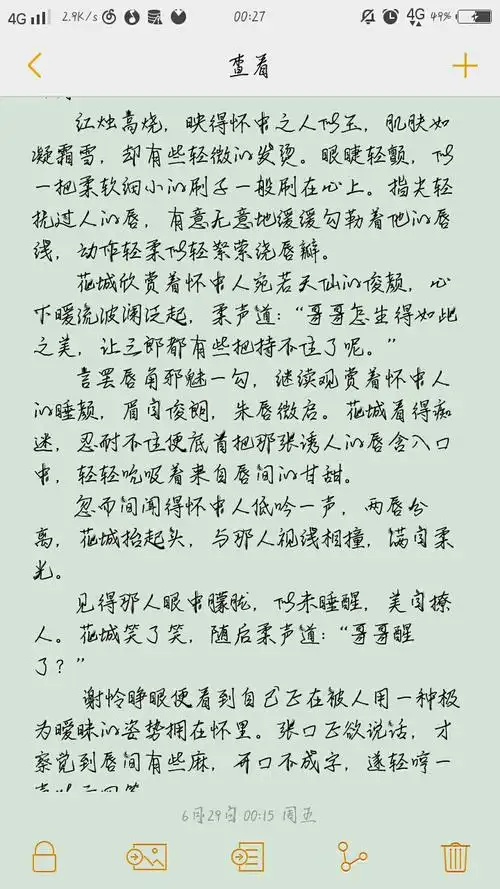 4G 2.9K/s 00:27 4G 49%
查看
红烛高烧，映得怀中之人似玉，肌肤如
凝霜雪，却有些轻微的发烫。眼睫轻颤，似
一把柔软细小的刷子一般刷在心上。指尖轻
抚过人的唇，有意无意地缓缓勾勒着他的唇
线，动作轻柔似轻絮萦绕唇瓣。
花城欣赏着怀中人宛若天仙的俊颜，心
下暖流波澜泛起，柔声道：“哥哥怎生得如此
之美，让三郎都有些把持不住了呢。”
言罢唇角邪魅一勾，继续观赏着怀中人
的睡颜，眉目俊朗，朱唇微启。花城看得痴
迷，忍耐不住便底首把那张诱人的唇含入口
中，轻轻吮吸着来自唇间的甘甜。
忽而间闻得怀中人低吟一声，两唇分
离，花城抬起头，与那人视线相撞，满目柔
光。
见得那人眼中朦胧，似未睡醒，美目撩
人。花城笑了笑，随后柔声道：“哥哥醒
了？”
谢怜睁眼便看到自己正在被人用一种极
为暧昧的姿势拥在怀里。张口正欲说话，才
察觉到唇间有些麻，开口不成字，遂轻哼一
6月29日 00:15 周五